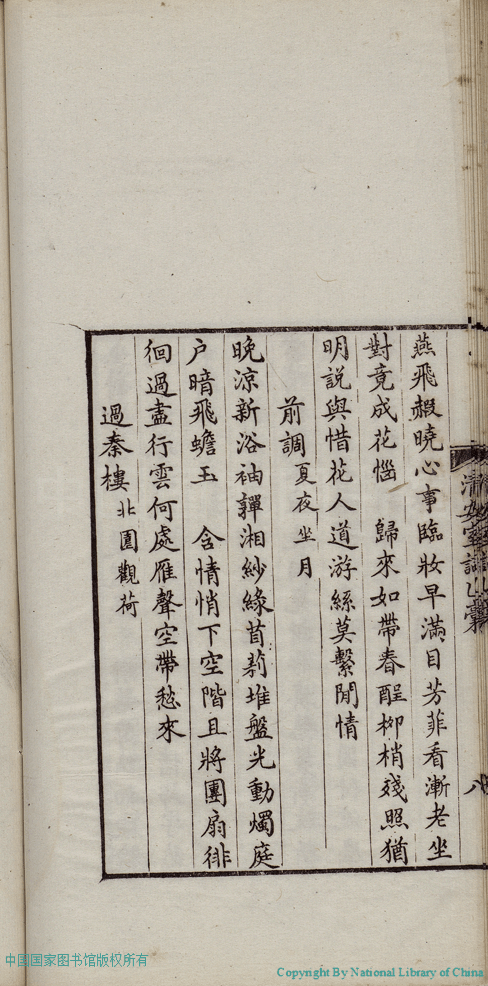 燕飛赧曉心事臨妝早滿目芳菲看漸老坐
對竟成花惱　歸來如帶春酲柳梢殘照猶
明説與惜花人道游絲莫繫閒情
前調 夏夜坐月
晚涼新浴袖嚲湘紗綠苜莉堆盤光動燭庭
户暗飛蟾玉　含情悄下空階且將團扇徘
徊過盡行雲何處雁聲空帶愁來
過秦樓 北園觀荷
八
中国国家图书馆版权所有
Copyright By National Library of China